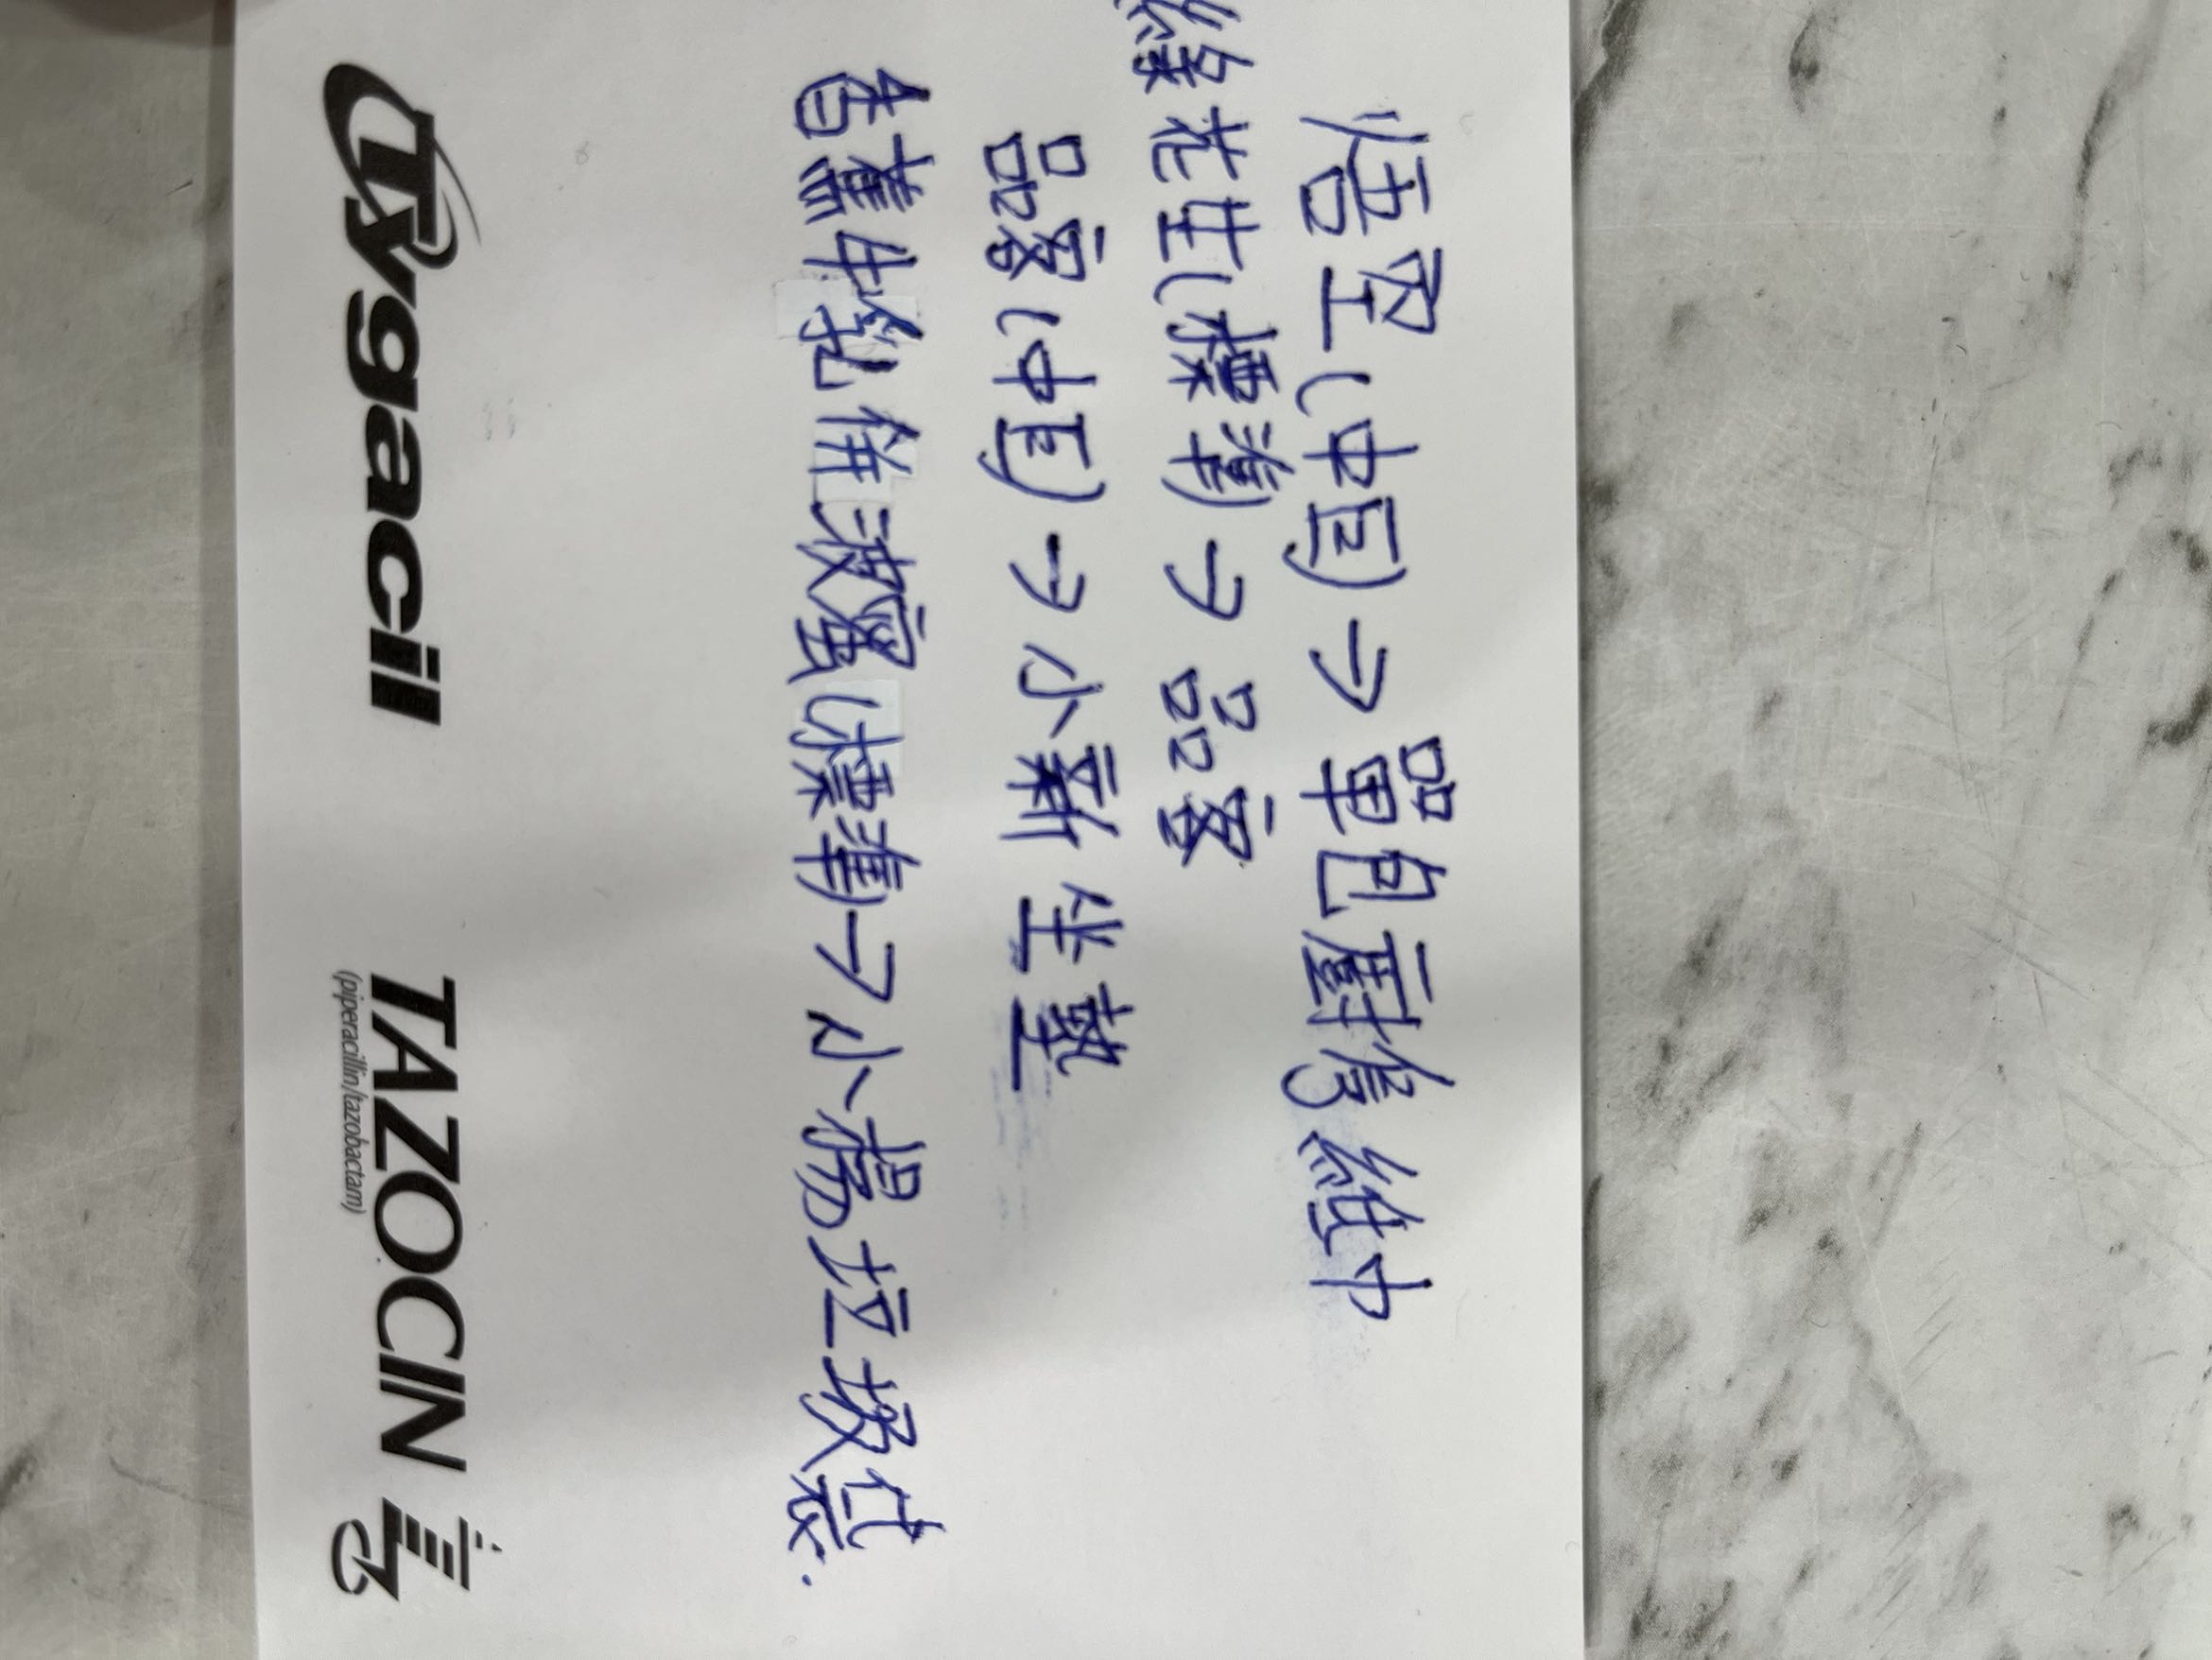 悟空(中巨)→單包廚房紙巾
花生(標準)→品客
品客(中巨)→小新坐墊
香蕉牛乳餅波蜜(標準)→小垃圾袋.
Tygacil TAZOCIN
(piperacillin/tazobactam)